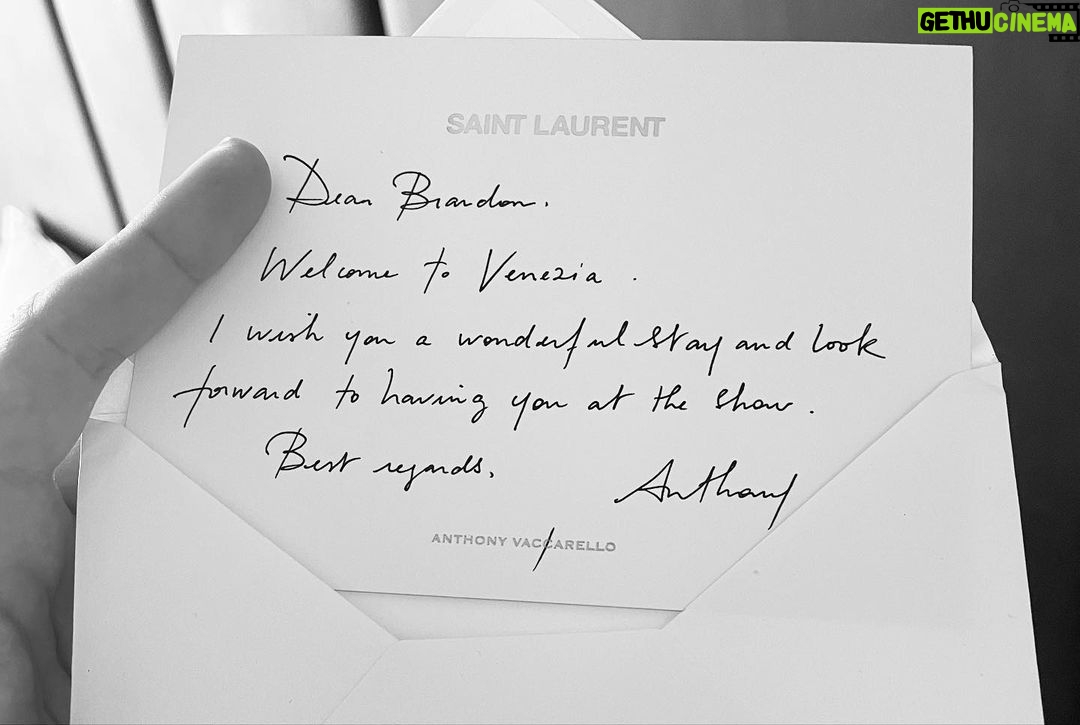 GETHUCINEMA
SAINT LAURENT
Dear Brandon.
Welcome to Venezia.
I wish you a wonderful stay and look
forward to having you at the show.
Best regards,
Anthony
ANTHONY VACCARELLO